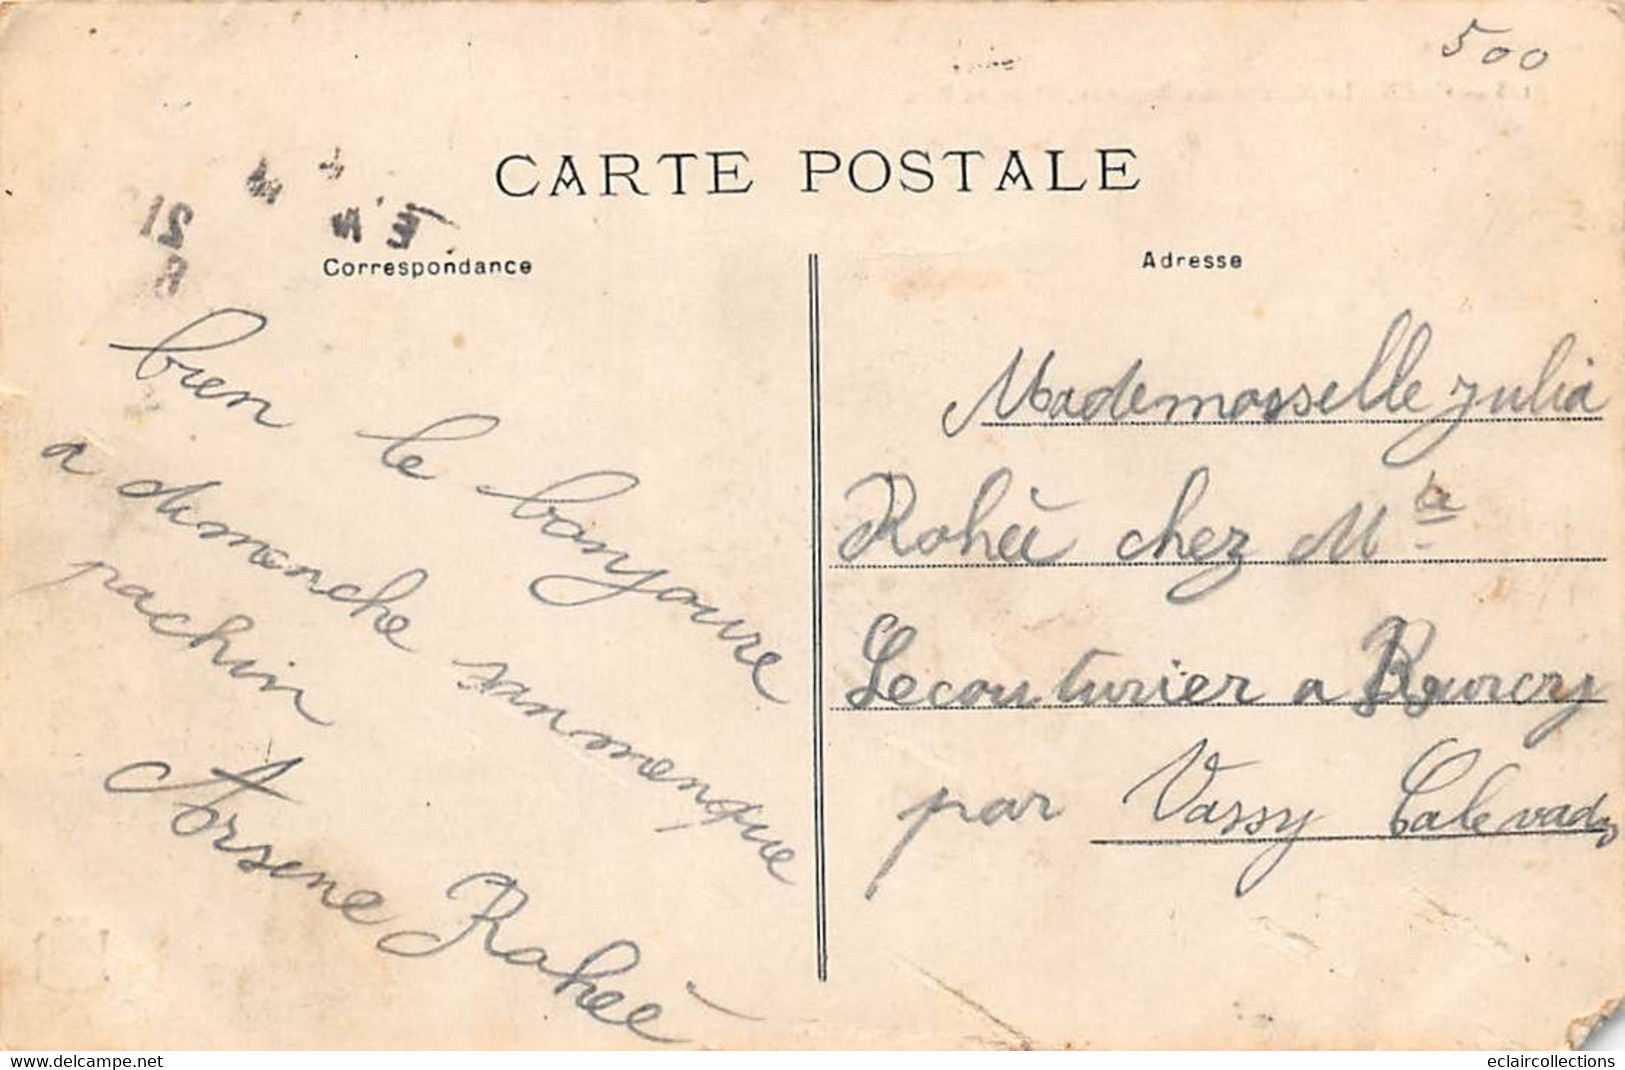 500
CARTE POSTALE
Correspondance
Adresse
bien le bonjoure
a dimanche san menque
pachin
Arsene Rohée
Mademosselle Julia
Rohée chez Mle
Lecouturier a Burcy
par Vassy Calevados
www.delcampe.net
eclaircollections